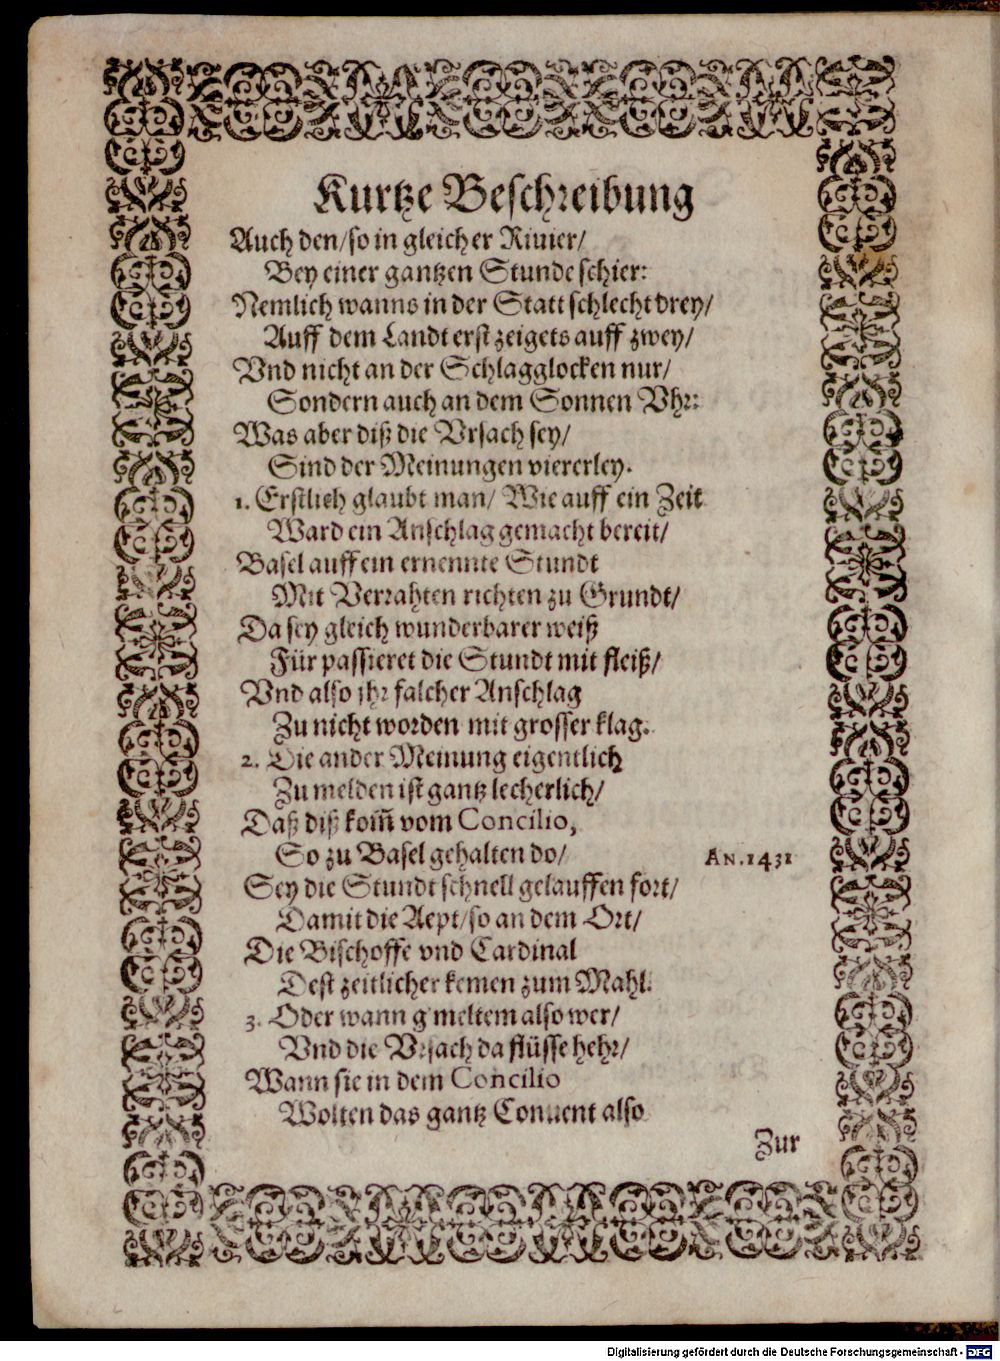 Kurtze Beschreibung
Auch den/so in gleicher Riuier/
Bey einer gantzen Stunde schier:
Nemlich wanns in der Statt schlecht drey/
Auff dem Landt erst zeigets auff zwey/
Vnd nicht an der Schlagglocken nur/
Sondern auch an dem Sonnen Vhr:
Was aber diß die Vrsach sey/
Sind der Meinungen viererley.
1. Erstlich glaubt man/ Wie auff ein Zeit
Ward ein Anschlag gemacht bereit/
Basel auff ein ernennte Stundt
Mit Verrahten richten zu Grundt/
Da sey gleich wunderbarer weiß
Für passieret die Stundt mit fleiß/
Vnd also jhr falcher Anschlag
Zu nicht worden mit grosser klag.
2. Die ander Meinung eigentlich
Zu melden ist gantz lecherlich/
Daß diß kom̃ vom Concilio,
So zu Basel gehalten do/ AN.1431
Sey die Stundt schnell gelauffen fort/
Damit die Aept/so an dem Ort/
Die Bischoffe vnd Cardinal
Dest zeitlicher kemen zum Mahl.
3. Oder wann g'meltem also wer/
Vnd die Vrsach da flüsse hehr/
Wann sie in dem Concilio
Wolten das gantz Conuent also
Zur
Digitalisierung gefördert durch die Deutsche Forschungsgemeinschaft - DFG